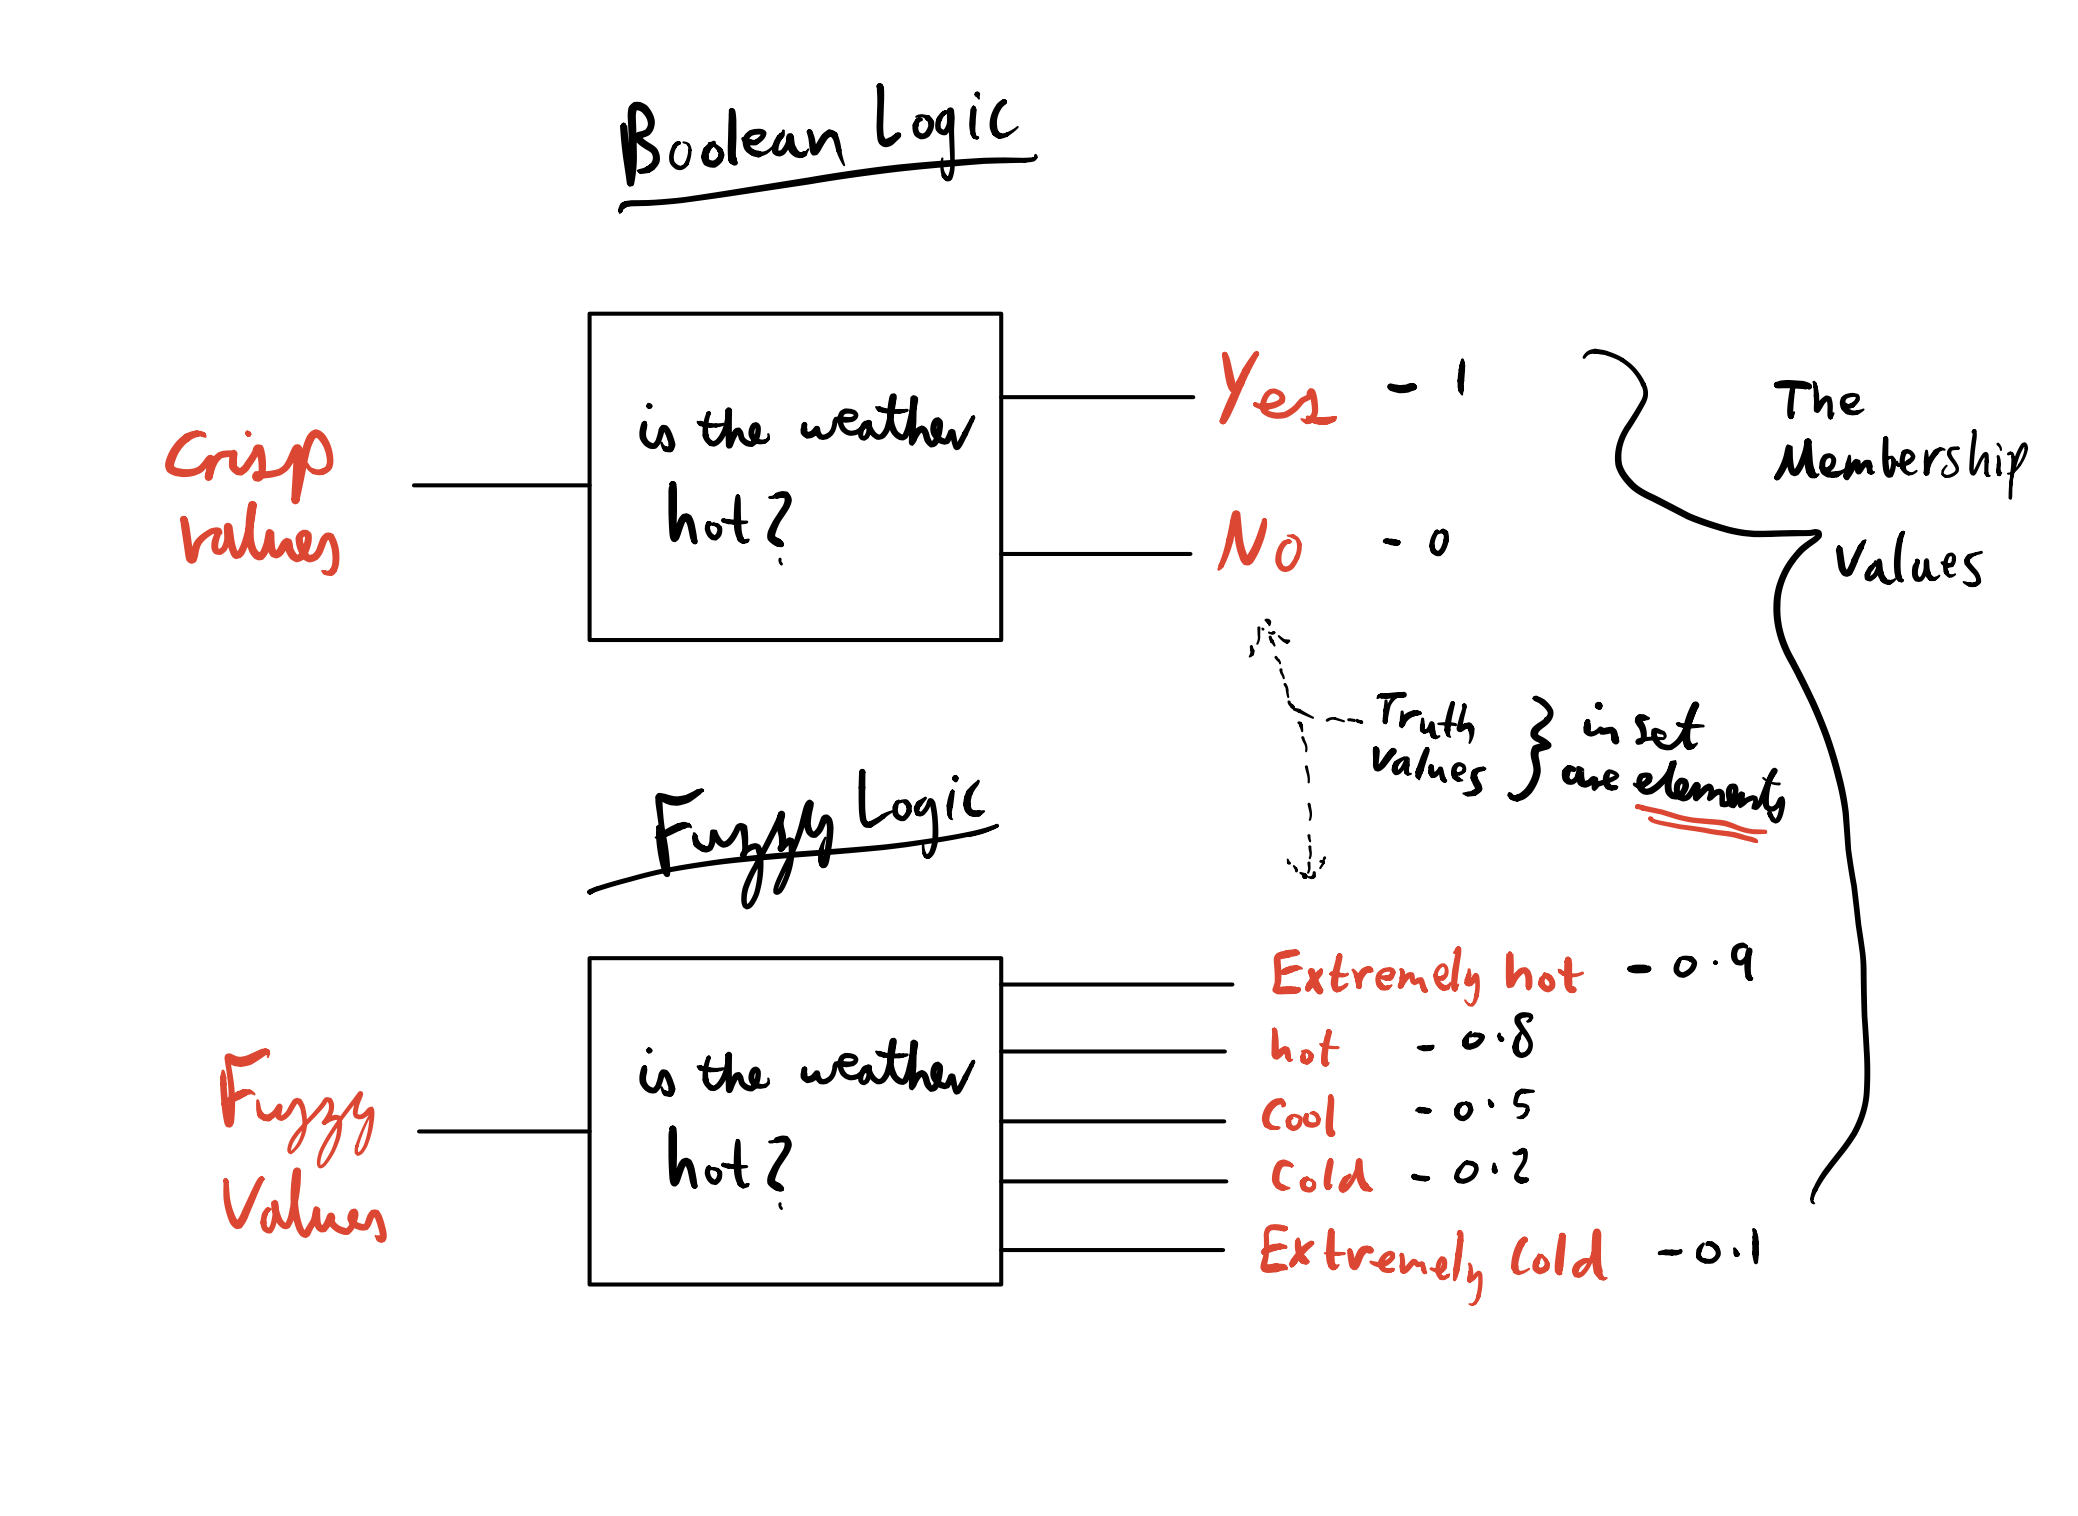 Boolean Logic
Crisp
values
is the weather
hot?
Yes - 1
No - 0
The
Membership
Values
Truth
values } in set
are elements
Fuzzy Logic
Fuzzy
Values
is the weather
hot?
Extremely hot - 0.9
hot - 0.8
Cool - 0.5
Cold - 0.2
Extremely Cold - 0.1